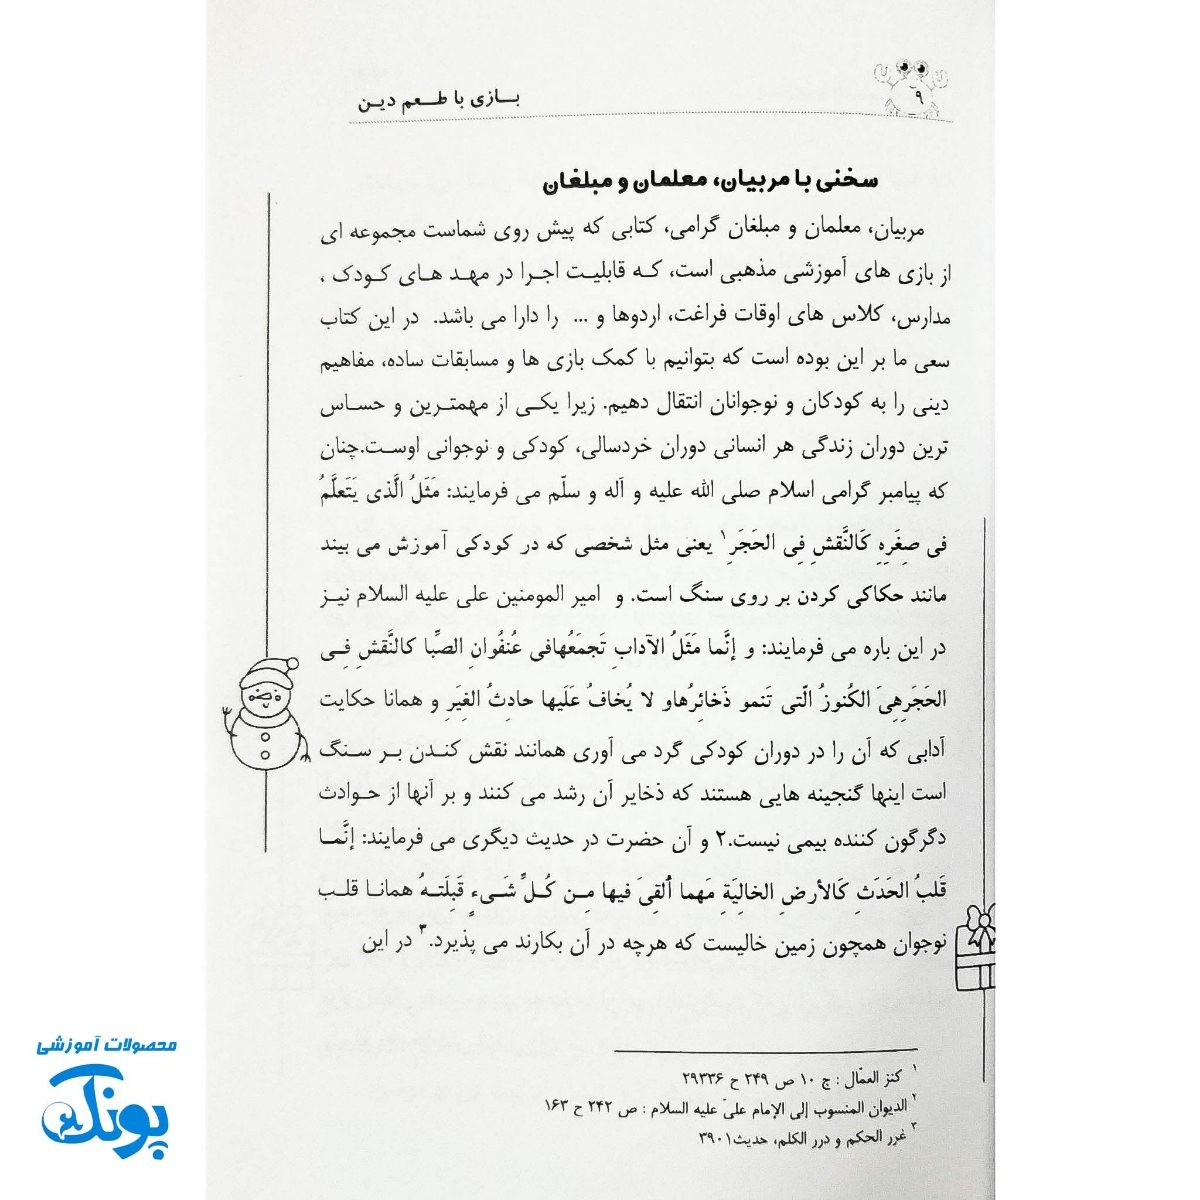 بازی با طعم دین
۹
سخنی با مربیان، معلمان و مبلغان
مربیان، معلمان و مبلغان گرامی، کتابی که پیش روی شماست مجموعه ای
از بازی های آموزشی مذهبی است، که قابلیت اجرا در مهد های کودک ،
مدارس، کلاس های اوقات فراغت، اردوها و ... را دارا می باشد. در این کتاب
سعی ما بر این بوده است که بتوانیم با کمک بازی ها و مسابقات ساده، مفاهیم
دینی را به کودکان و نوجوانان انتقال دهیم. زیرا یکی از مهمترین و حساس
ترین دوران زندگی هر انسانی دوران خردسالی، کودکی و نوجوانی اوست.چنان
که پیامبر گرامی اسلام صلی الله علیه و آله و سلّم می فرمایند: مَثَلُ الَّذی یَتَعلَّمُ
فی صِغَرِهِ کَالنَّقشِ فِی الحَجَرِ۱ یعنی مثل شخصی که در کودکی آموزش می بیند
مانند حکاکی کردن بر روی سنگ است. و امیر المومنین علی علیه السلام نیز
در این باره می فرمایند: و إنَّما مَثَلُ الآدابِ تَجمَعُهافی عُنفُوانِ الصِّبا کالنَّقشِ فِی
الحَجَرِهِیَ الکُنوزُ الَّتی تَنمو ذَخائِرُهاو لا یُخافُ عَلَیها حادِثُ الغِیَرِ و همانا حکایت
آدابی که آن را در دوران کودکی گرد می آوری همانند نقش کندن بر سنگ
است اینها گنجینه هایی هستند که ذخایر آن رشد می کنند و بر آنها از حوادث
دگرگون کننده بیمی نیست.۲ و آن حضرت در حدیث دیگری می فرمایند: إنَّما
قَلبُ الحَدَثِ کَالأرضِ الخالِیَةِ مَهما اُلقِیَ فیها مِن کُلِّ شَیءٍ قَبِلَتهُ همانا قلب
نوجوان همچون زمین خالیست که هرچه در آن بکارند می پذیرد.۳ در این
۱ کنز العمّال : ج ۱۰ ص ۲۴۹ ح ۲۹۳۳۶
۲ الدیوان المنسوب إلی الإمام علیّ علیه السلام : ص ۲۴۲ ح ۱۶۳
۳ غرر الحکم و درر الکلم، حدیث۳۹۰۱
محصولات آموزشی
پونک